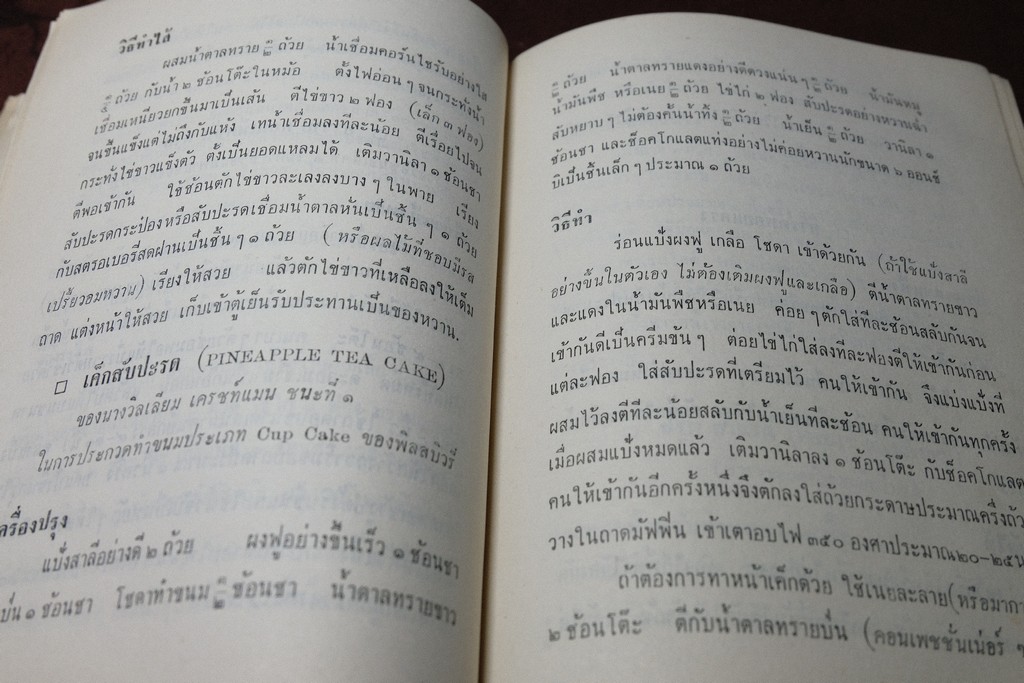 วิธีทำไส้
ผสมน้ำตาลทราย ๑/๒ ถ้วย น้ำเชื่อมคอร์นไซรับอย่างใส
ถ้วย กับน้ำ ๒ ช้อนโต๊ะในหม้อ ตั้งไฟอ่อน ๆ จนกระทั่งน้ำ
เชื่อมเหนียวยกขึ้นมาเป็นเส้น ตีไข่ขาว ๒ ฟอง (เล็ก ๓ ฟอง)
จนขึ้นแข็งแต่ไม่ถึงกับแห้ง เทน้ำเชื่อมลงทีละน้อย ตีเรื่อยไปจน
กระทั่งไข่ขาวแข็งตัว ตั้งเป็นยอดแหลมได้ เติมวานิลา ๑ ช้อนชา
ตีพอเข้ากัน ใช้ช้อนตักไข่ขาวละเลงลงบาง ๆ ในพาย เรียง
สับปะรดกระป๋องหรือสับปะรดเชื่อมน้ำตาลหั่นเป็นชิ้น ๆ ๑ ถ้วย
กับสตรอเบอรี่สดฝานเป็นชิ้น ๆ ๑ ถ้วย (หรือผลไม้ที่ชอบมีรส
เปรี้ยวอมหวาน) เรียงให้สวย แล้วตักไข่ขาวที่เหลือลงให้เต็ม
ถาด แต่งหน้าให้สวย เก็บเข้าตู้เย็นรับประทานเป็นของหวาน.
□ เค็กสับปะรด (PINEAPPLE TEA CAKE)
ของนางวิลเลียม เครชท์แมน ชนะที่ ๑
ในการประกวดทำขนมประเภท Cup Cake ของพิลสบิวรี่
ครื่องปรุง
แป้งสาลีอย่างดี ๒ ถ้วย ผงฟูอย่างขึ้นเร็ว ๑ ช้อนชา
ป่น ๑ ช้อนชา โซดาทำขนม ๑/๒ ช้อนชา น้ำตาลทรายขาว
๑/๒ ถ้วย น้ำตาลทรายแดงอย่างดีตวงแน่น ๆ ๑/๒ ถ้วย น้ำมันหมู
น้ำมันพืช หรือเนย ๑/๒ ถ้วย ไข่ไก่ ๒ ฟอง สับปะรดอย่างหวานฉ่ำ
สับหยาบ ๆ ไม่ต้องคั้นน้ำทิ้ง ๑/๒ ถ้วย น้ำเย็น ๑/๒ ถ้วย วานิลา ๑
ช้อนชา และช็อคโกแลตแท่งอย่างไม่ค่อยหวานนักขนาด ๖ ออนซ์
บิเป็นชิ้นเล็ก ๆ ประมาณ ๑ ถ้วย
วิธีทำ
ร่อนแป้งผงฟู เกลือ โซดา เข้าด้วยกัน (ถ้าใช้แป้งสาลี
อย่างขึ้นในตัวเอง ไม่ต้องเติมผงฟูและเกลือ) ตีน้ำตาลทรายขาว
และแดงในน้ำมันพืชหรือเนย ค่อย ๆ ตักใส่ทีละช้อนสลับกันจน
เข้ากันดีเป็นครีมข้น ๆ ต่อยไข่ไก่ใส่ลงทีละฟองตีให้เข้ากันก่อน
แต่ละฟอง ใส่สับปะรดที่เตรียมไว้ คนให้เข้ากัน จึงแบ่งแป้งที่
ผสมไว้ลงตีทีละน้อยสลับกับน้ำเย็นทีละช้อน คนให้เข้ากันทุกครั้ง
เมื่อผสมแป้งหมดแล้ว เติมวานิลาลง ๑ ช้อนโต๊ะ กับช็อคโกแลต
คนให้เข้ากันอีกครั้งหนึ่งจึงตักลงใส่ถ้วยกระดาษประมาณครึ่งถ้ว
วางในถาดมัฟฟิ่น เข้าเตาอบไฟ ๓๕๐ องศาประมาณ๒๐–๒๕น
ถ้าต้องการทาหน้าเค็กด้วย ใช้เนยละลาย(หรือมากา
๒ ช้อนโต๊ะ ตีกับน้ำตาลทรายป่น (คอนเพชชั่นเน่อร์ ๆ